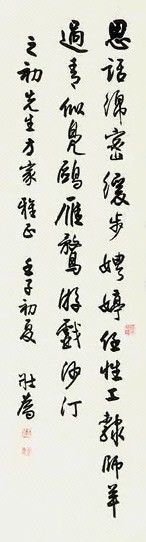 思话绵密缓步娉婷任性工隶师羊
过青似凫鸥雁鹜游戏沙汀
之初先生方家雅正 壬子初夏